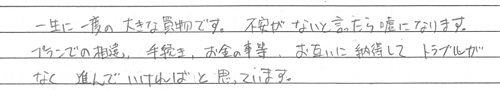 一生に一度の大きな買物です。不安がないと言ったら嘘になります。
プランでの相違、手続き、お金の事等、お互いに納得してトラブルが
なく進んでいければと思っています。